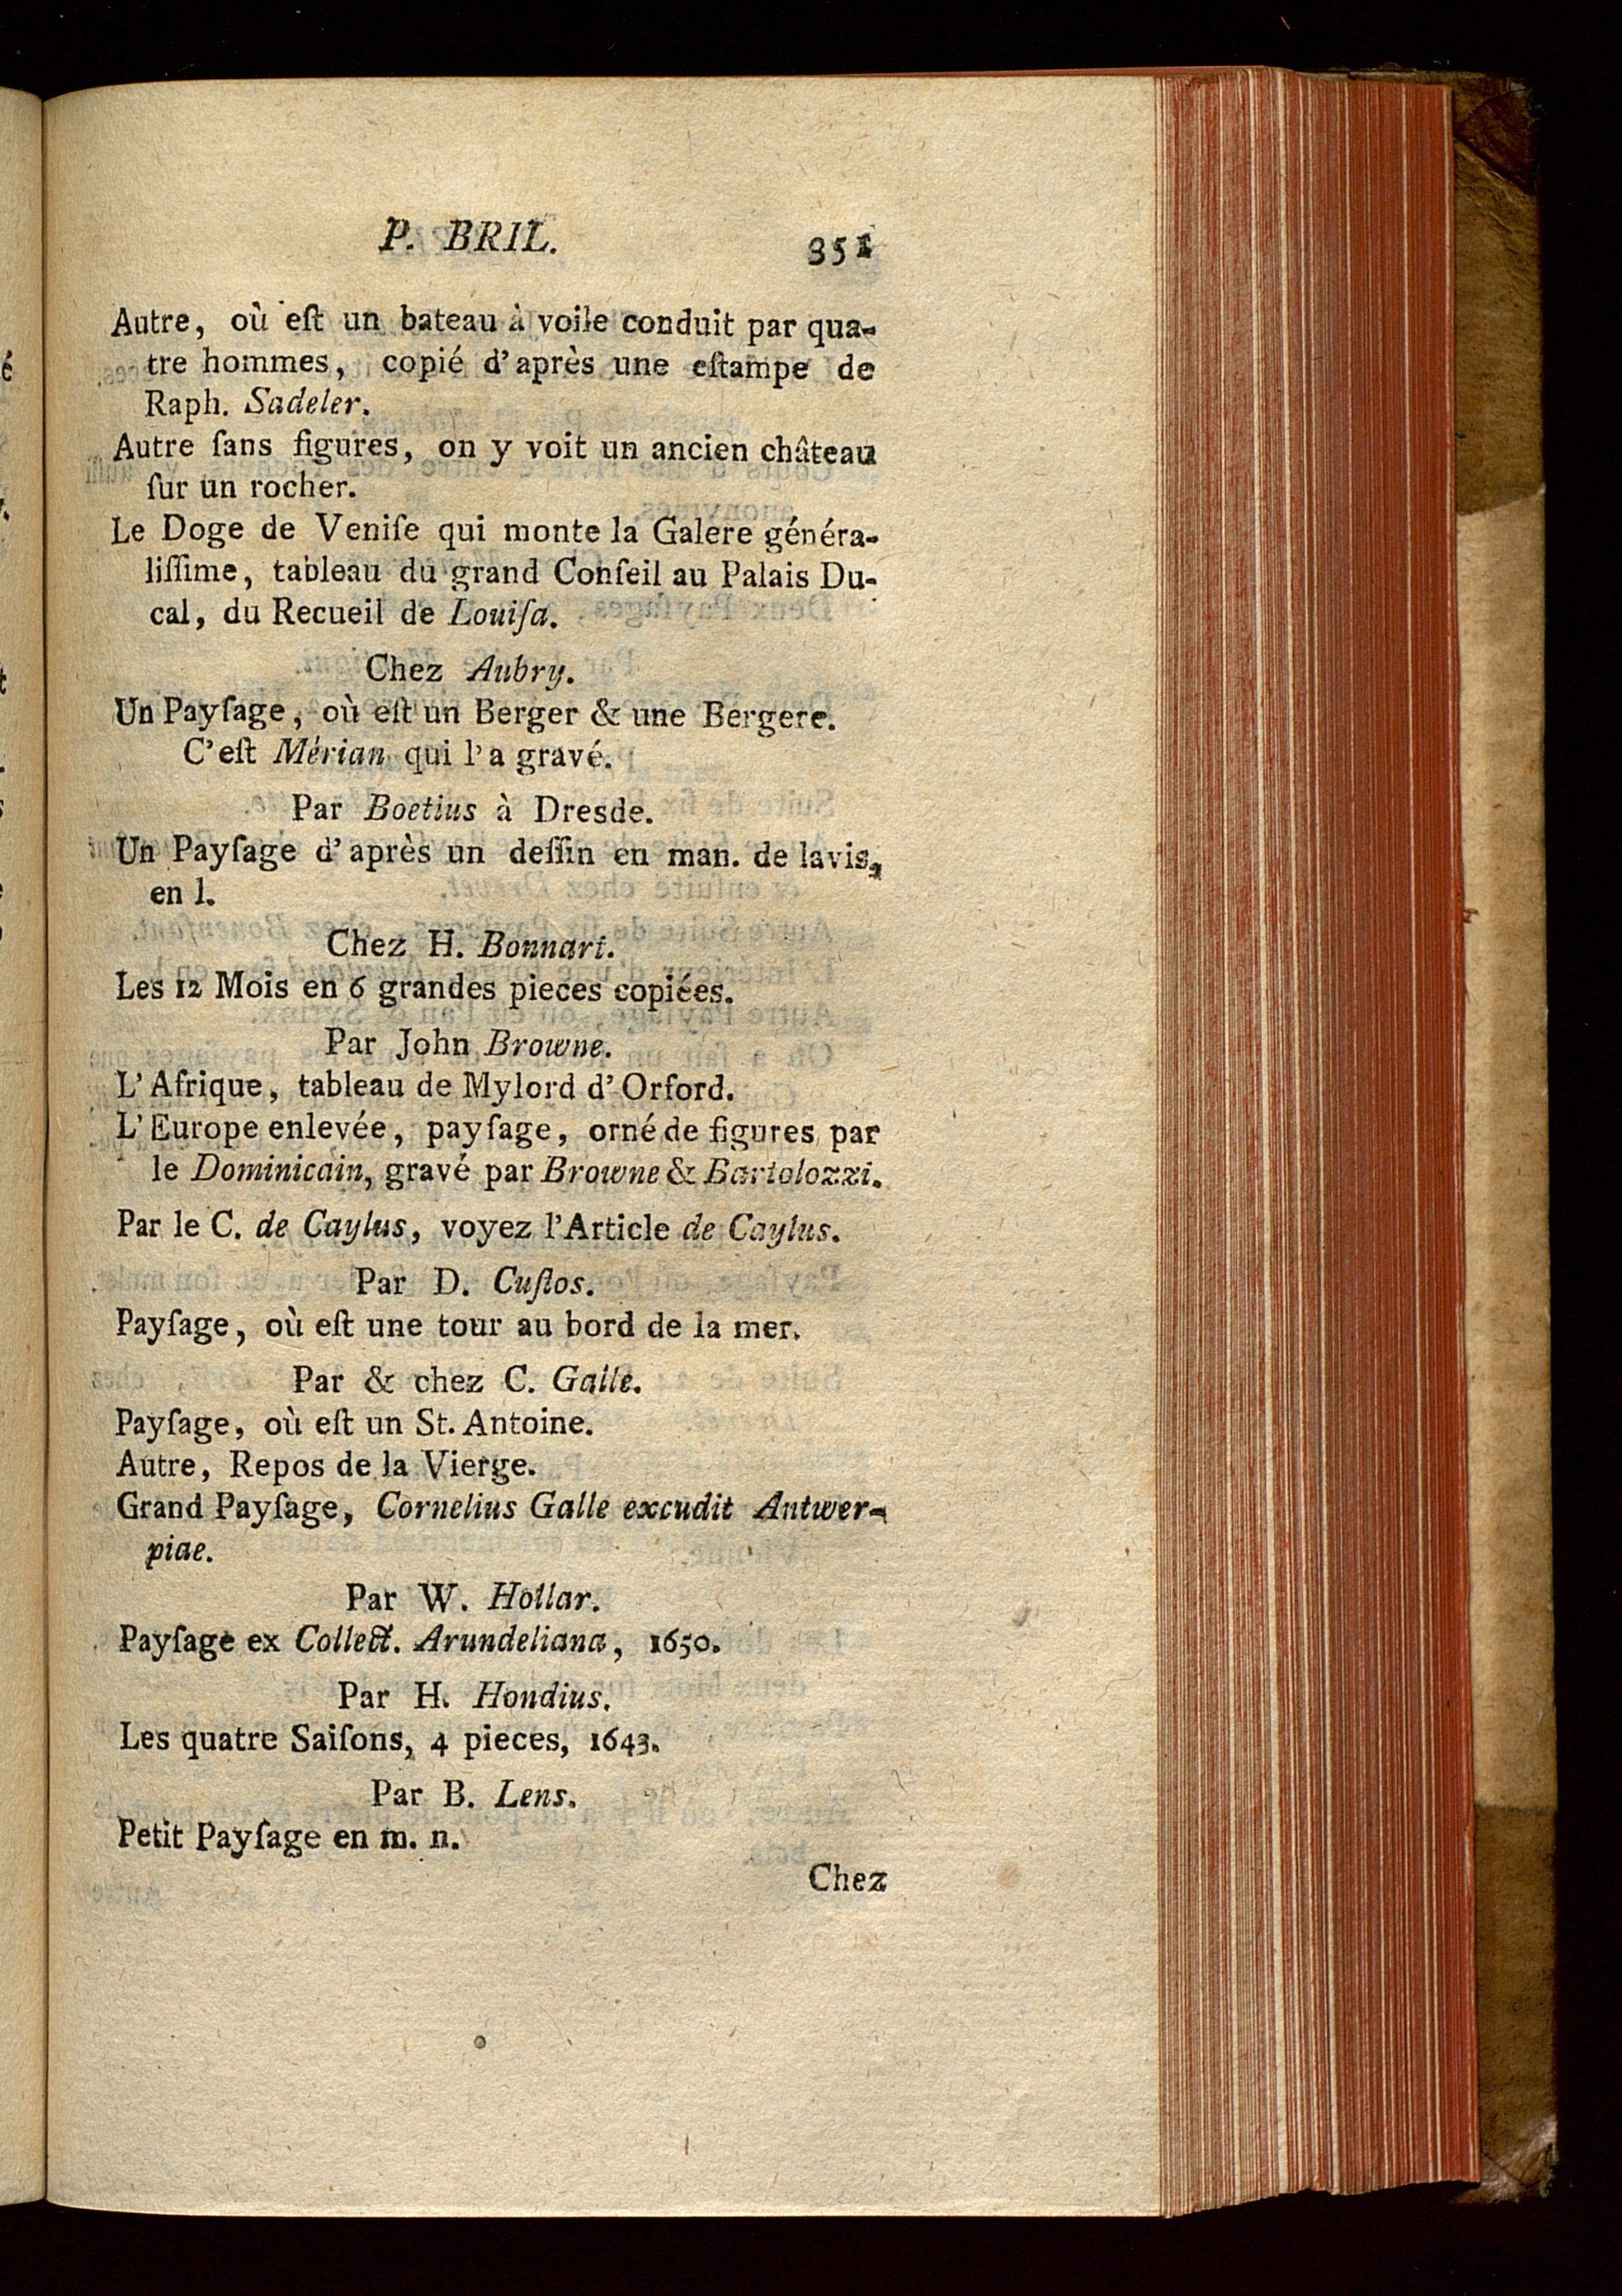 P. BRIL. 351
Autre, où eſt un bateau à voile conduit par qua-
tre hommes, copié d'après une eſtampe de
Raph. Sadeler.
Autre ſans figures, on y voit un ancien château
ſur un rocher.
Le Doge de Veniſe qui monte la Galere généra-
liſſime, tableau du grand Conſeil au Palais Du-
cal, du Recueil de Louiſa.
Chez Aubry.
Un Payſage, où eſt un Berger & une Bergere.
C'eſt Mérian qui l'a gravé.
Par Boetius à Dresde.
Un Payſage d'après un deſſin en man. de lavis,
en l.
Chez H. Bonnart.
Les 12 Mois en 6 grandes pieces copiées.
Par John Browne.
L'Afrique, tableau de Mylord d'Orford.
L'Europe enlevée, payſage, orné de figures par
le Dominicain, gravé par Browne & Bartolozzi.
Par le C. de Caylus, voyez l'Article de Caylus.
Par D. Cuſtos.
Payſage, où eſt une tour au bord de la mer.
Par & chez C. Galle.
Payſage, où eſt un St. Antoine.
Autre, Repos de la Vierge.
Grand Payſage, Cornelius Galle excudit Antwer-
piae.
Par W. Hollar.
Payſage ex Collect. Arundeliana, 1650.
Par H. Hondius.
Les quatre Saiſons, 4 pieces, 1643.
Par B. Lens.
Petit Payſage en m. n.
Chez